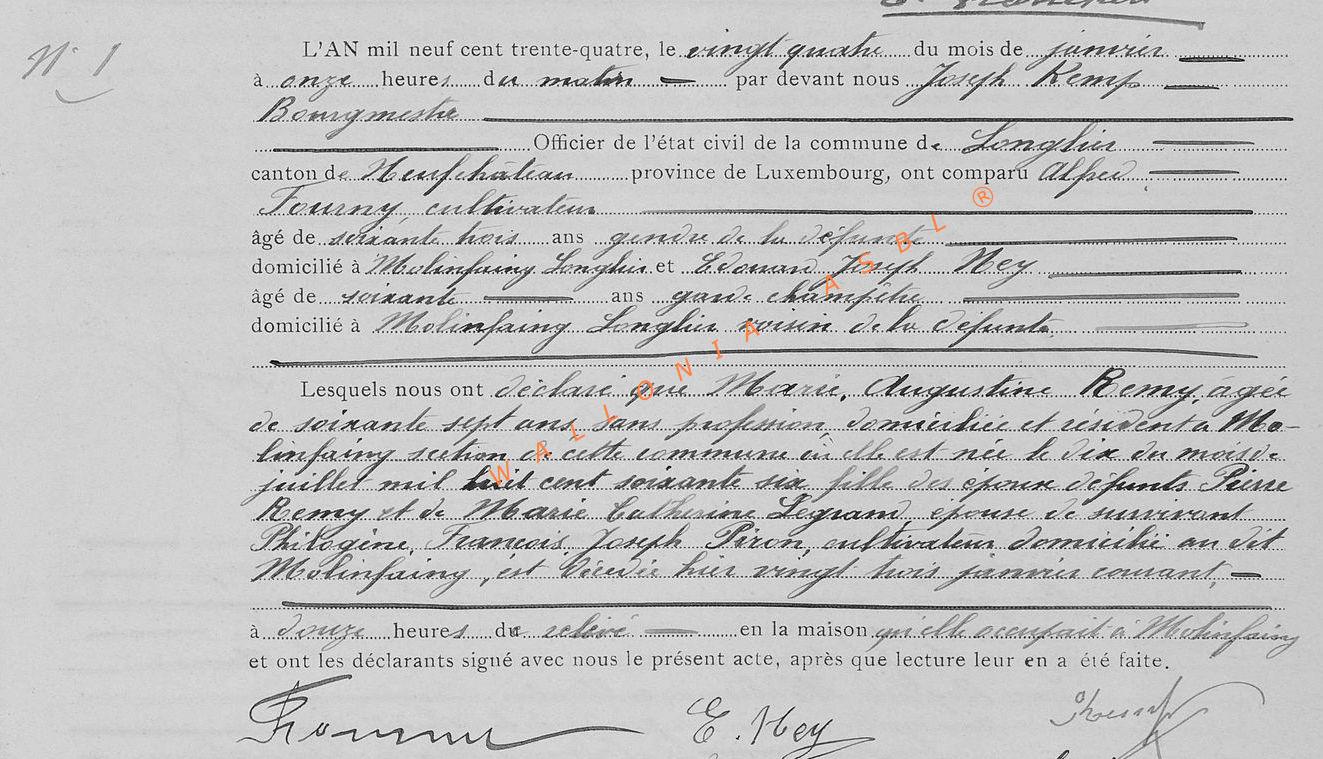 N° 1
L'AN mil neuf cent trente-quatre, le vingt quatre du mois de janvier
à onze heures du matin par devant nous Joseph Kemp
Bourgmestre
Officier de l'état civil de la commune de Longlier
canton de Neufchâteau province de Luxembourg, ont comparu Alfred
Fourny cultivateur
âgé de soixante trois ans gendre de la défunte
domicilié à Molinfaing Longlier et Edouard Joseph Ney
âgé de soixante ans garde champêtre
domicilié à Molinfaing Longlier voisin de la défunte
Lesquels nous ont déclaré que Marie, Augustine Remy, âgée
de soixante sept ans, sans profession, domiciliée et résident à Mo-
linfaing section de cette commune où elle est née le dix du mois de
juillet mil huit cent soixante six fille des époux défunts Pierre
Remy et de Marie Catherine Legrand, épouse de survivant
Philogine, François, Joseph Piron, cultivateur domicilié au dit
Molinfaing, est décédée hier vingt trois janvier courant,
à douze heures du relevé en la maison qu'elle occupait à Molinfaing
et ont les déclarants signé avec nous le présent acte, après que lecture leur en a été faite.
E. Ney
WALLONIA ASBL ®